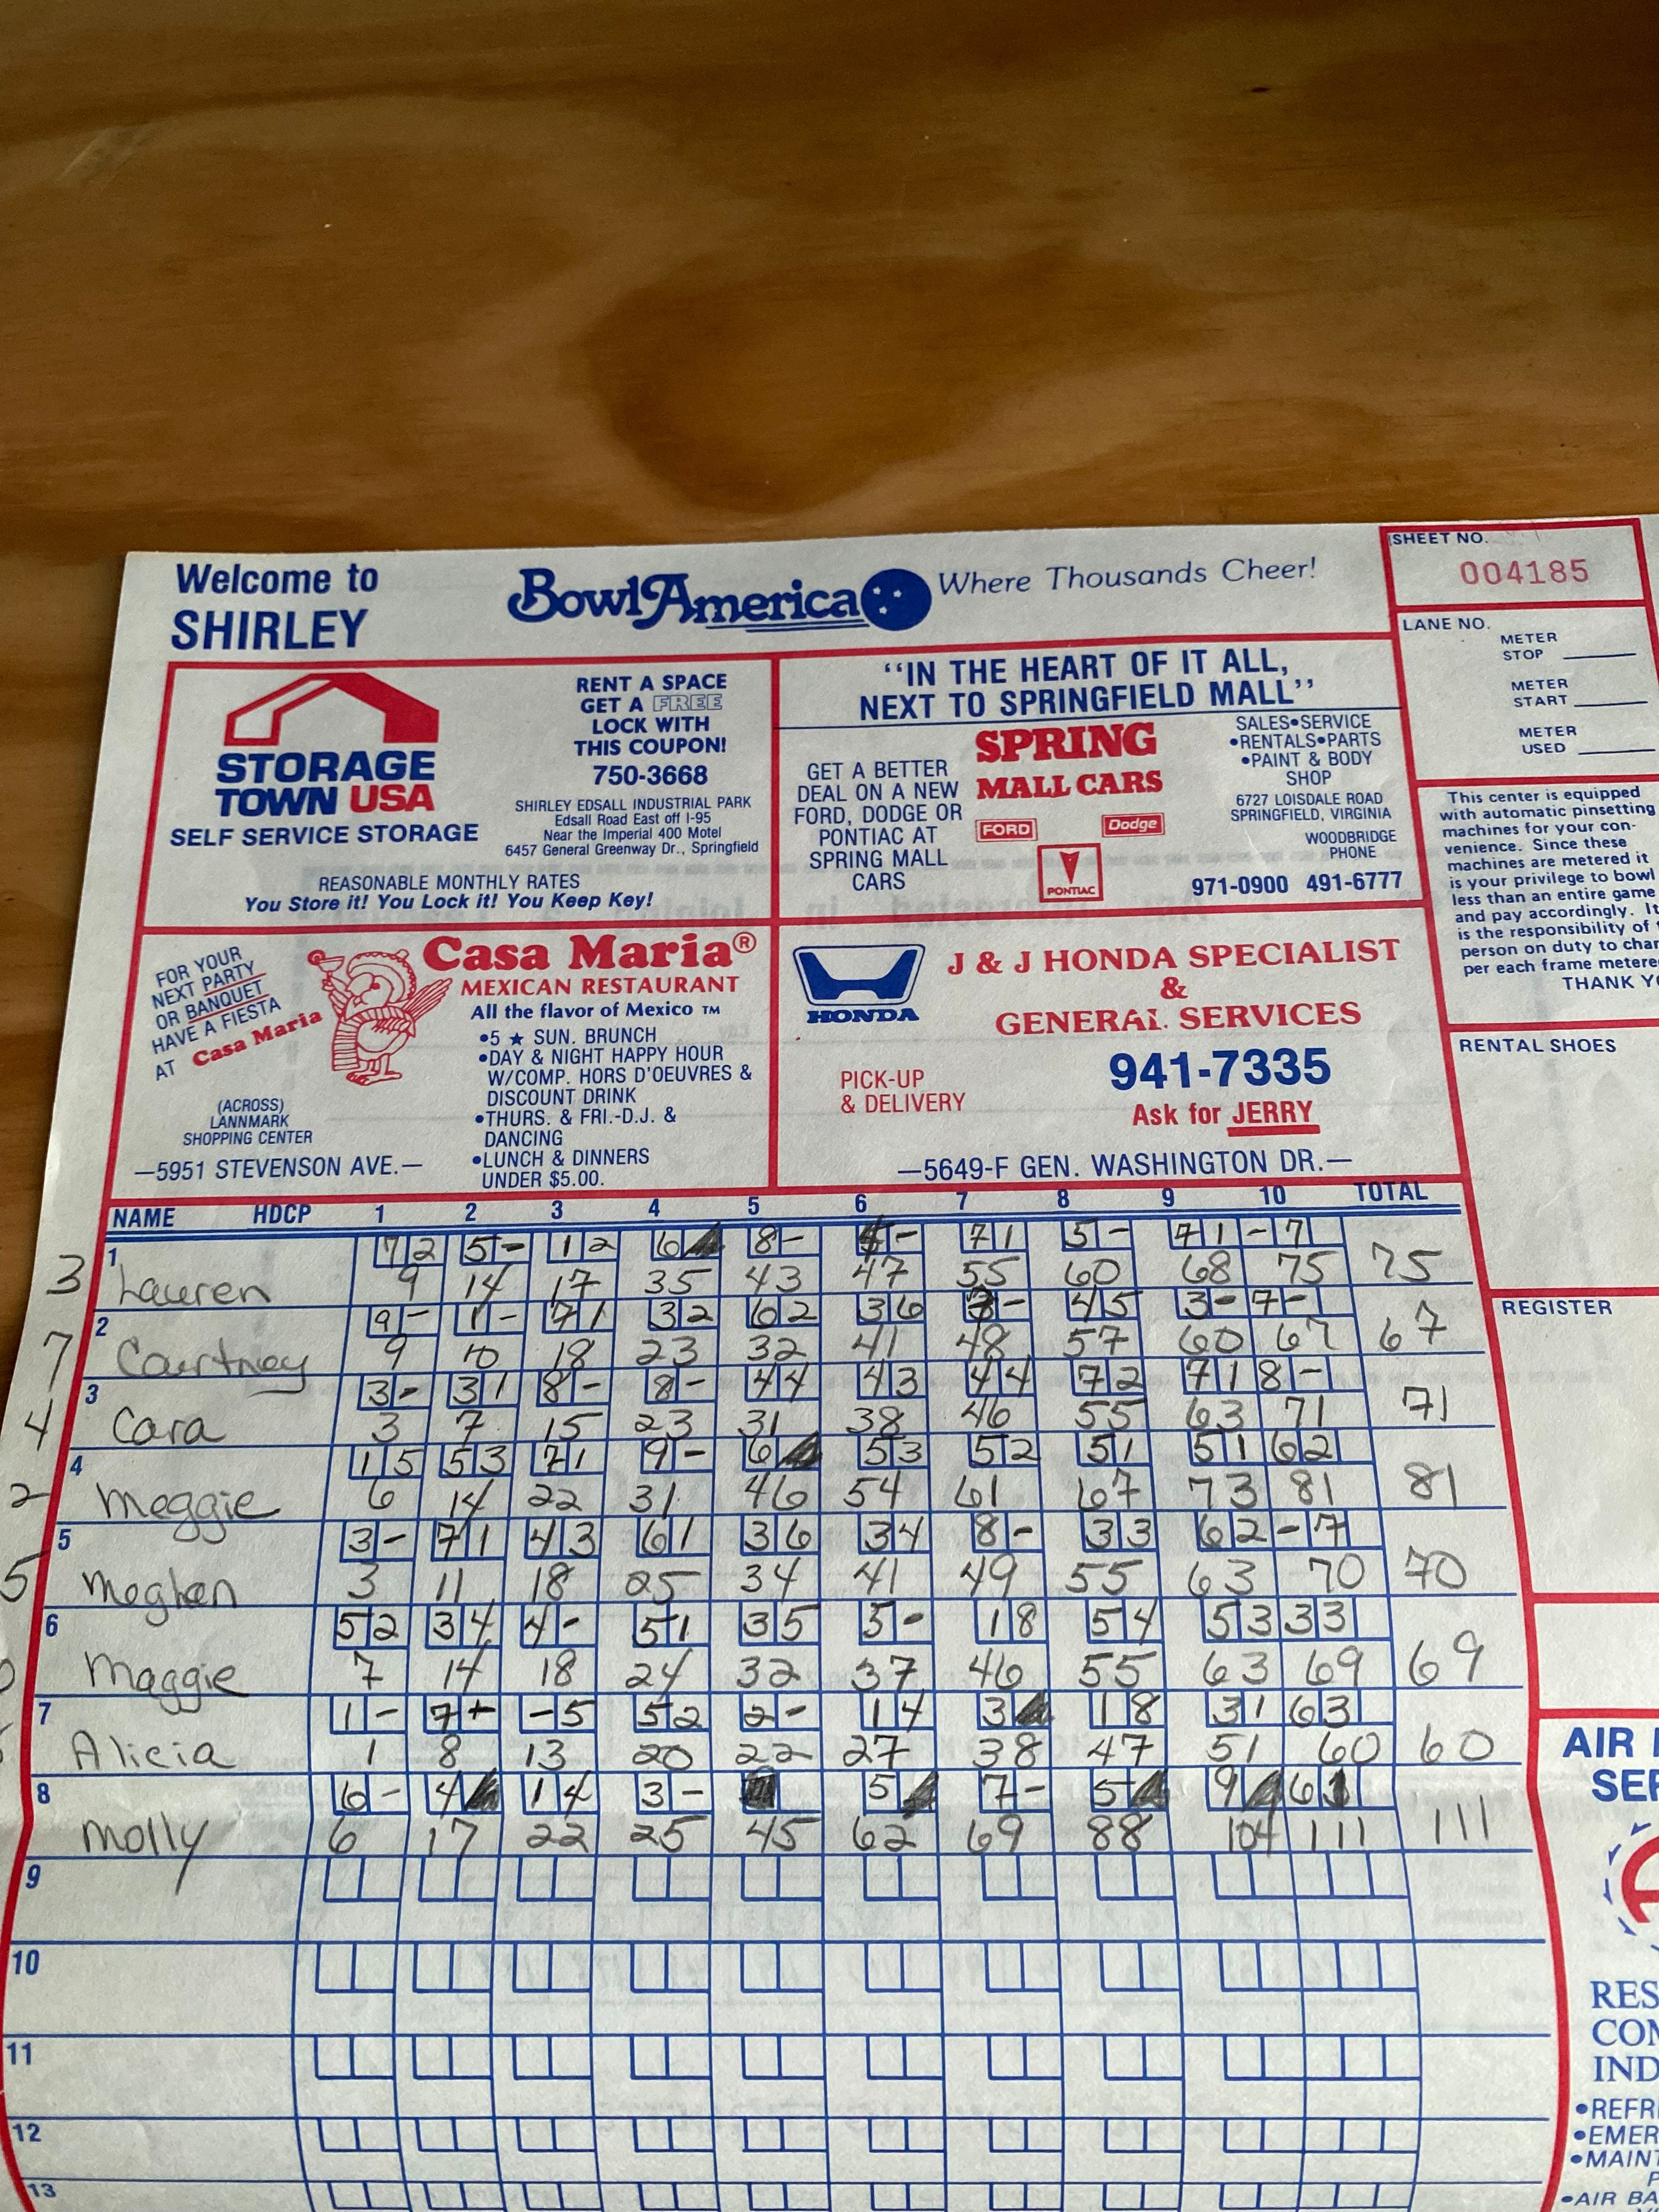 Welcome to
SHIRLEY
BowlAmerica
Where Thousands Cheer!
SHEET NO.
004185
LANE NO.
METER
STOP
METER
START
METER
USED
STORAGE
TOWN USA
SELF SERVICE STORAGE
RENT A SPACE
GET A FREE
LOCK WITH
THIS COUPON!
750-3668
SHIRLEY EDSALL INDUSTRIAL PARK
Edsall Road East off I-95
Near the Imperial 400 Motel
6457 General Greenway Dr., Springfield
REASONABLE MONTHLY RATES
You Store it! You Lock it! You Keep Key!
"IN THE HEART OF IT ALL,
NEXT TO SPRINGFIELD MALL"
GET A BETTER
DEAL ON A NEW
FORD, DODGE OR
PONTIAC AT
SPRING MALL
CARS
SPRING
MALL CARS
FORD
Dodge
PONTIAC
SALES•SERVICE
•RENTALS•PARTS
•PAINT & BODY
SHOP
6727 LOISDALE ROAD
SPRINGFIELD, VIRGINIA
WOODBRIDGE
PHONE
971-0900 491-6777
This center is equipped
with automatic pinsetting
machines for your con-
venience. Since these
machines are metered it
is your privilege to bowl
less than an entire game
and pay accordingly. It
is the responsibility of
person on duty to
per each frame
THANK
FOR YOUR
NEXT PARTY
OR BANQUET
HAVE A FIESTA
AT Casa Maria
(ACROSS)
LANNMARK
SHOPPING CENTER
—5951 STEVENSON AVE.—
Casa Maria®
MEXICAN RESTAURANT
All the flavor of Mexico ™
•5 ★ SUN. BRUNCH
•DAY & NIGHT HAPPY HOUR
W/COMP. HORS D'OEUVRES &
DISCOUNT DRINK
•THURS. & FRI.-D.J. &
DANCING
•LUNCH & DINNERS
UNDER $5.00.
HONDA
J & J HONDA SPECIALIST
&
GENERAL SERVICES
941-7335
PICK-UP
& DELIVERY
Ask for JERRY
—5649-F GEN. WASHINGTON DR.—
RENTAL SHOES
REGISTER
NAME HDCP 1 2 3 4 5 6 7 8 9 10 TOTAL
1 7 2 5 - 1 2 6 8 - - 7 1 5 - 7 1 - 7
3 Lauren 9 14 17 35 43 47 55 60 68 75 75
2 9 - 1 - 7 1 3 2 6 2 3 6 - 4 5 3 - 7 -
7 Courtney 9 10 18 23 32 41 48 57 60 67 67
3 3 - 3 1 8 - 8 - 4 4 4 3 4 4 7 2 7 1 8 -
4 Cara 3 7 15 23 31 38 46 55 63 71 71
4 1 5 5 3 7 1 9 - 6 5 3 5 2 5 1 5 1 6 2
2 Meggie 6 14 22 31 46 54 61 67 73 81 81
5 3 - 7 1 4 3 6 1 3 6 3 4 8 - 3 3 6 2 - 7
5 Meghan 3 11 18 25 34 41 49 55 63 70 70
6 5 2 3 4 4 - 5 1 3 5 5 - 1 8 5 4 5 3 3 3
Maggie 7 14 18 24 32 37 46 55 63 69 69
7 1 - 7 - - 5 5 2 2 - 1 4 3 1 8 3 1 6 3
Alicia 1 8 13 20 22 27 38 47 51 60 60
8 6 - 4 1 4 3 - 5 7 - 5 9 6 1
Molly 6 17 22 25 45 62 69 88 104 111 111
9
10
11
12
13
AIR
RES
COM
IND
•MAIN
•AIR BA